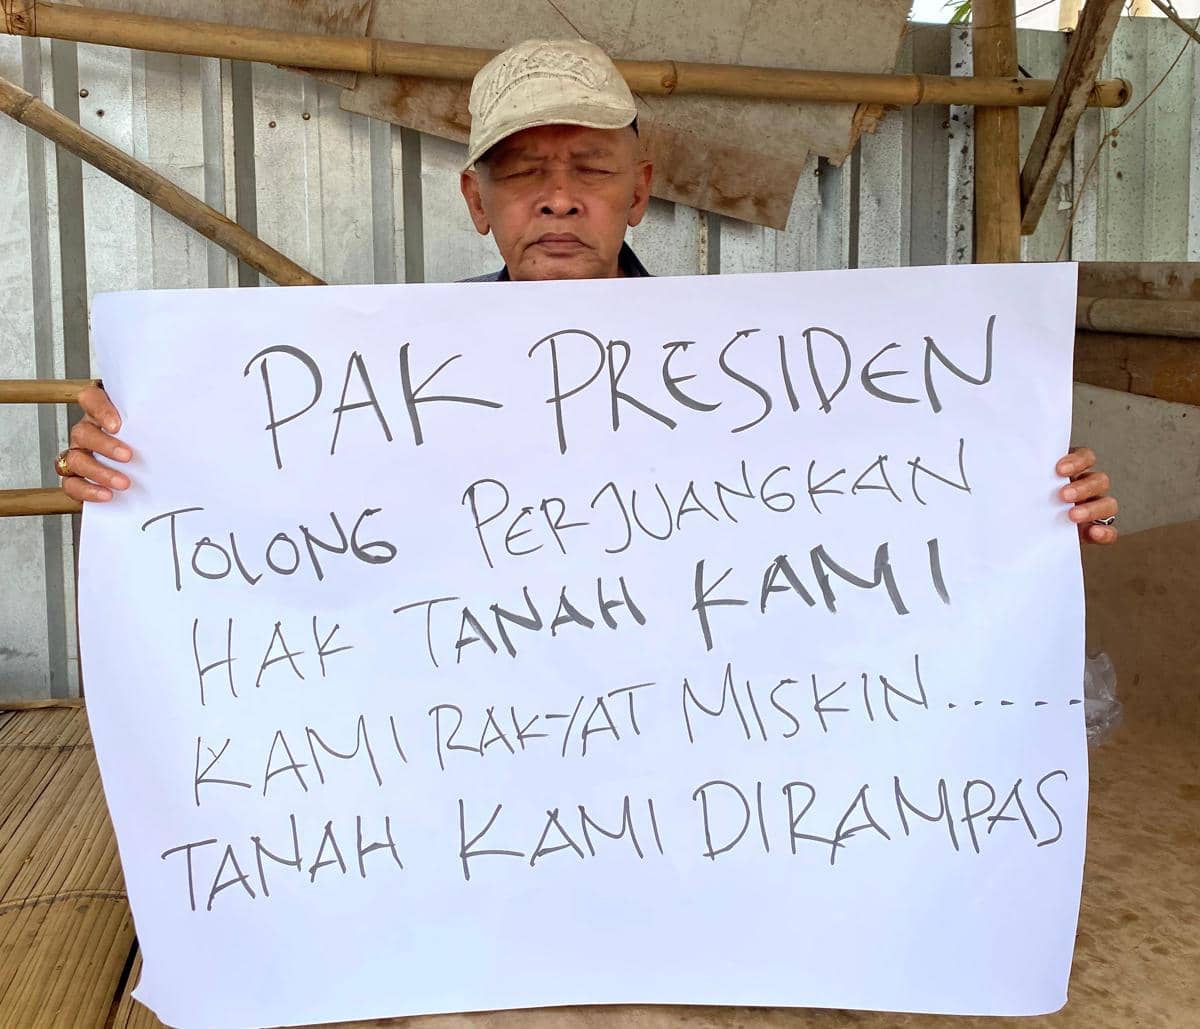 PAK PRESIDEN
TOLONG PERJUANGKAN
HAK TANAH KAMI
KAMI RAKYAT MISKIN......
TANAH KAMI DIRAMPAS